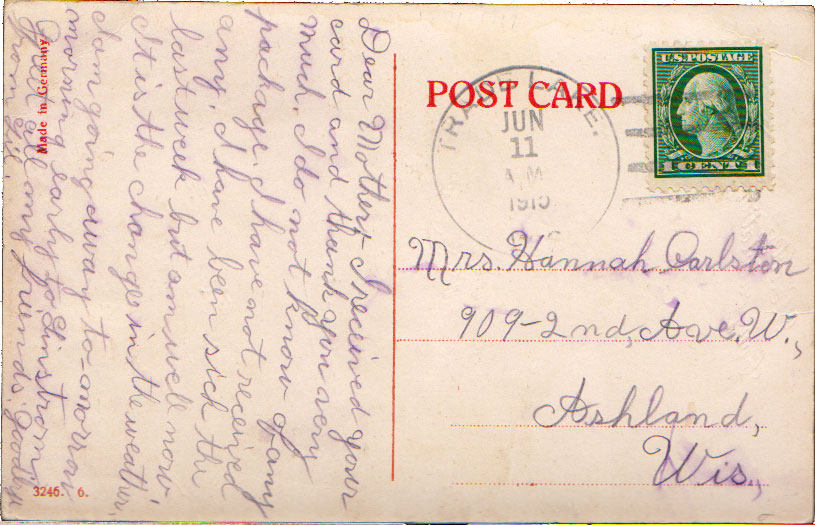 Dear Mother:- I received your
card and thank you very
much. I do not know of any
package. I have not received
any. I have been sick the
last week but am well now
It is the change in the weather.
I am going away to-morrow
morning early to
all my friends. Goodbye
from
Made in Germany
3246. 6.
POST CARD
TRADE LAKE.
JUN
11
A.M.
U.S. POSTAGE
1 CENT 1
Mrs. Hannah Carlston
909-2nd, Ave. W.,
Ashland,
Wis.,